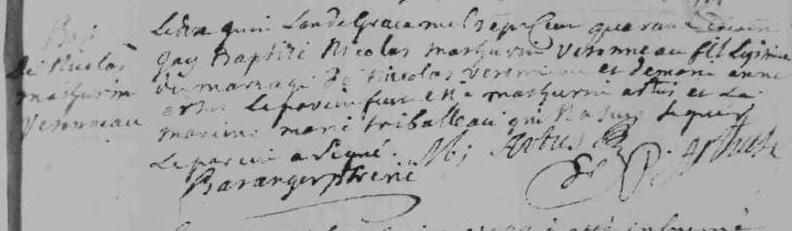 Bap
de Nicolas
mathurin
Veronneau
Le dix juin Lan de Grace mil sept Cent quarante
Jay Baptizé Nicolas mathurin Veronneau fils Legitime
du mariage De Nicolas Veronneau et de marie anne
artus Le parein fut Mathurin artus et La
mareine marie triballeau qui Na sus signer
Le parein a signé. M; Artus
Baranger ptre